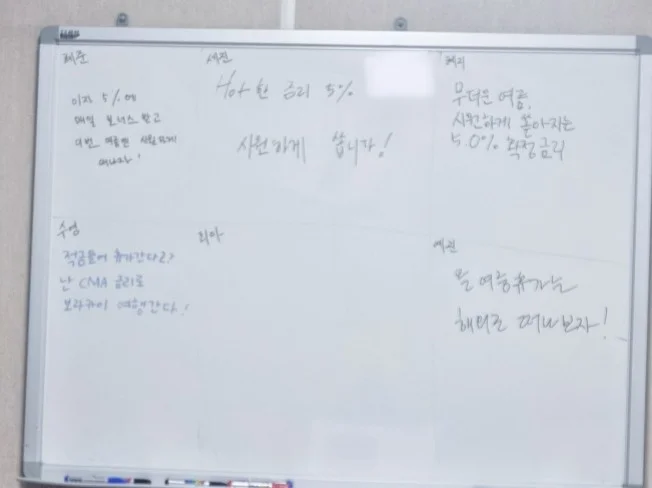 혜준
이자 5%에
매일 보너스 받고
이번 여름엔 시원하게
떠나자!
세진
Hot한 금리 5%
시원하게 쏩니다!
혜지
무더운 여름,
시원하게 쏟아지는
5.0% 확정금리
수영
적금들어 휴가간다고?
난 CMA 금리로
보라카이 여행간다!
리아
예진
올 여름휴가는
해외로 떠나보자!